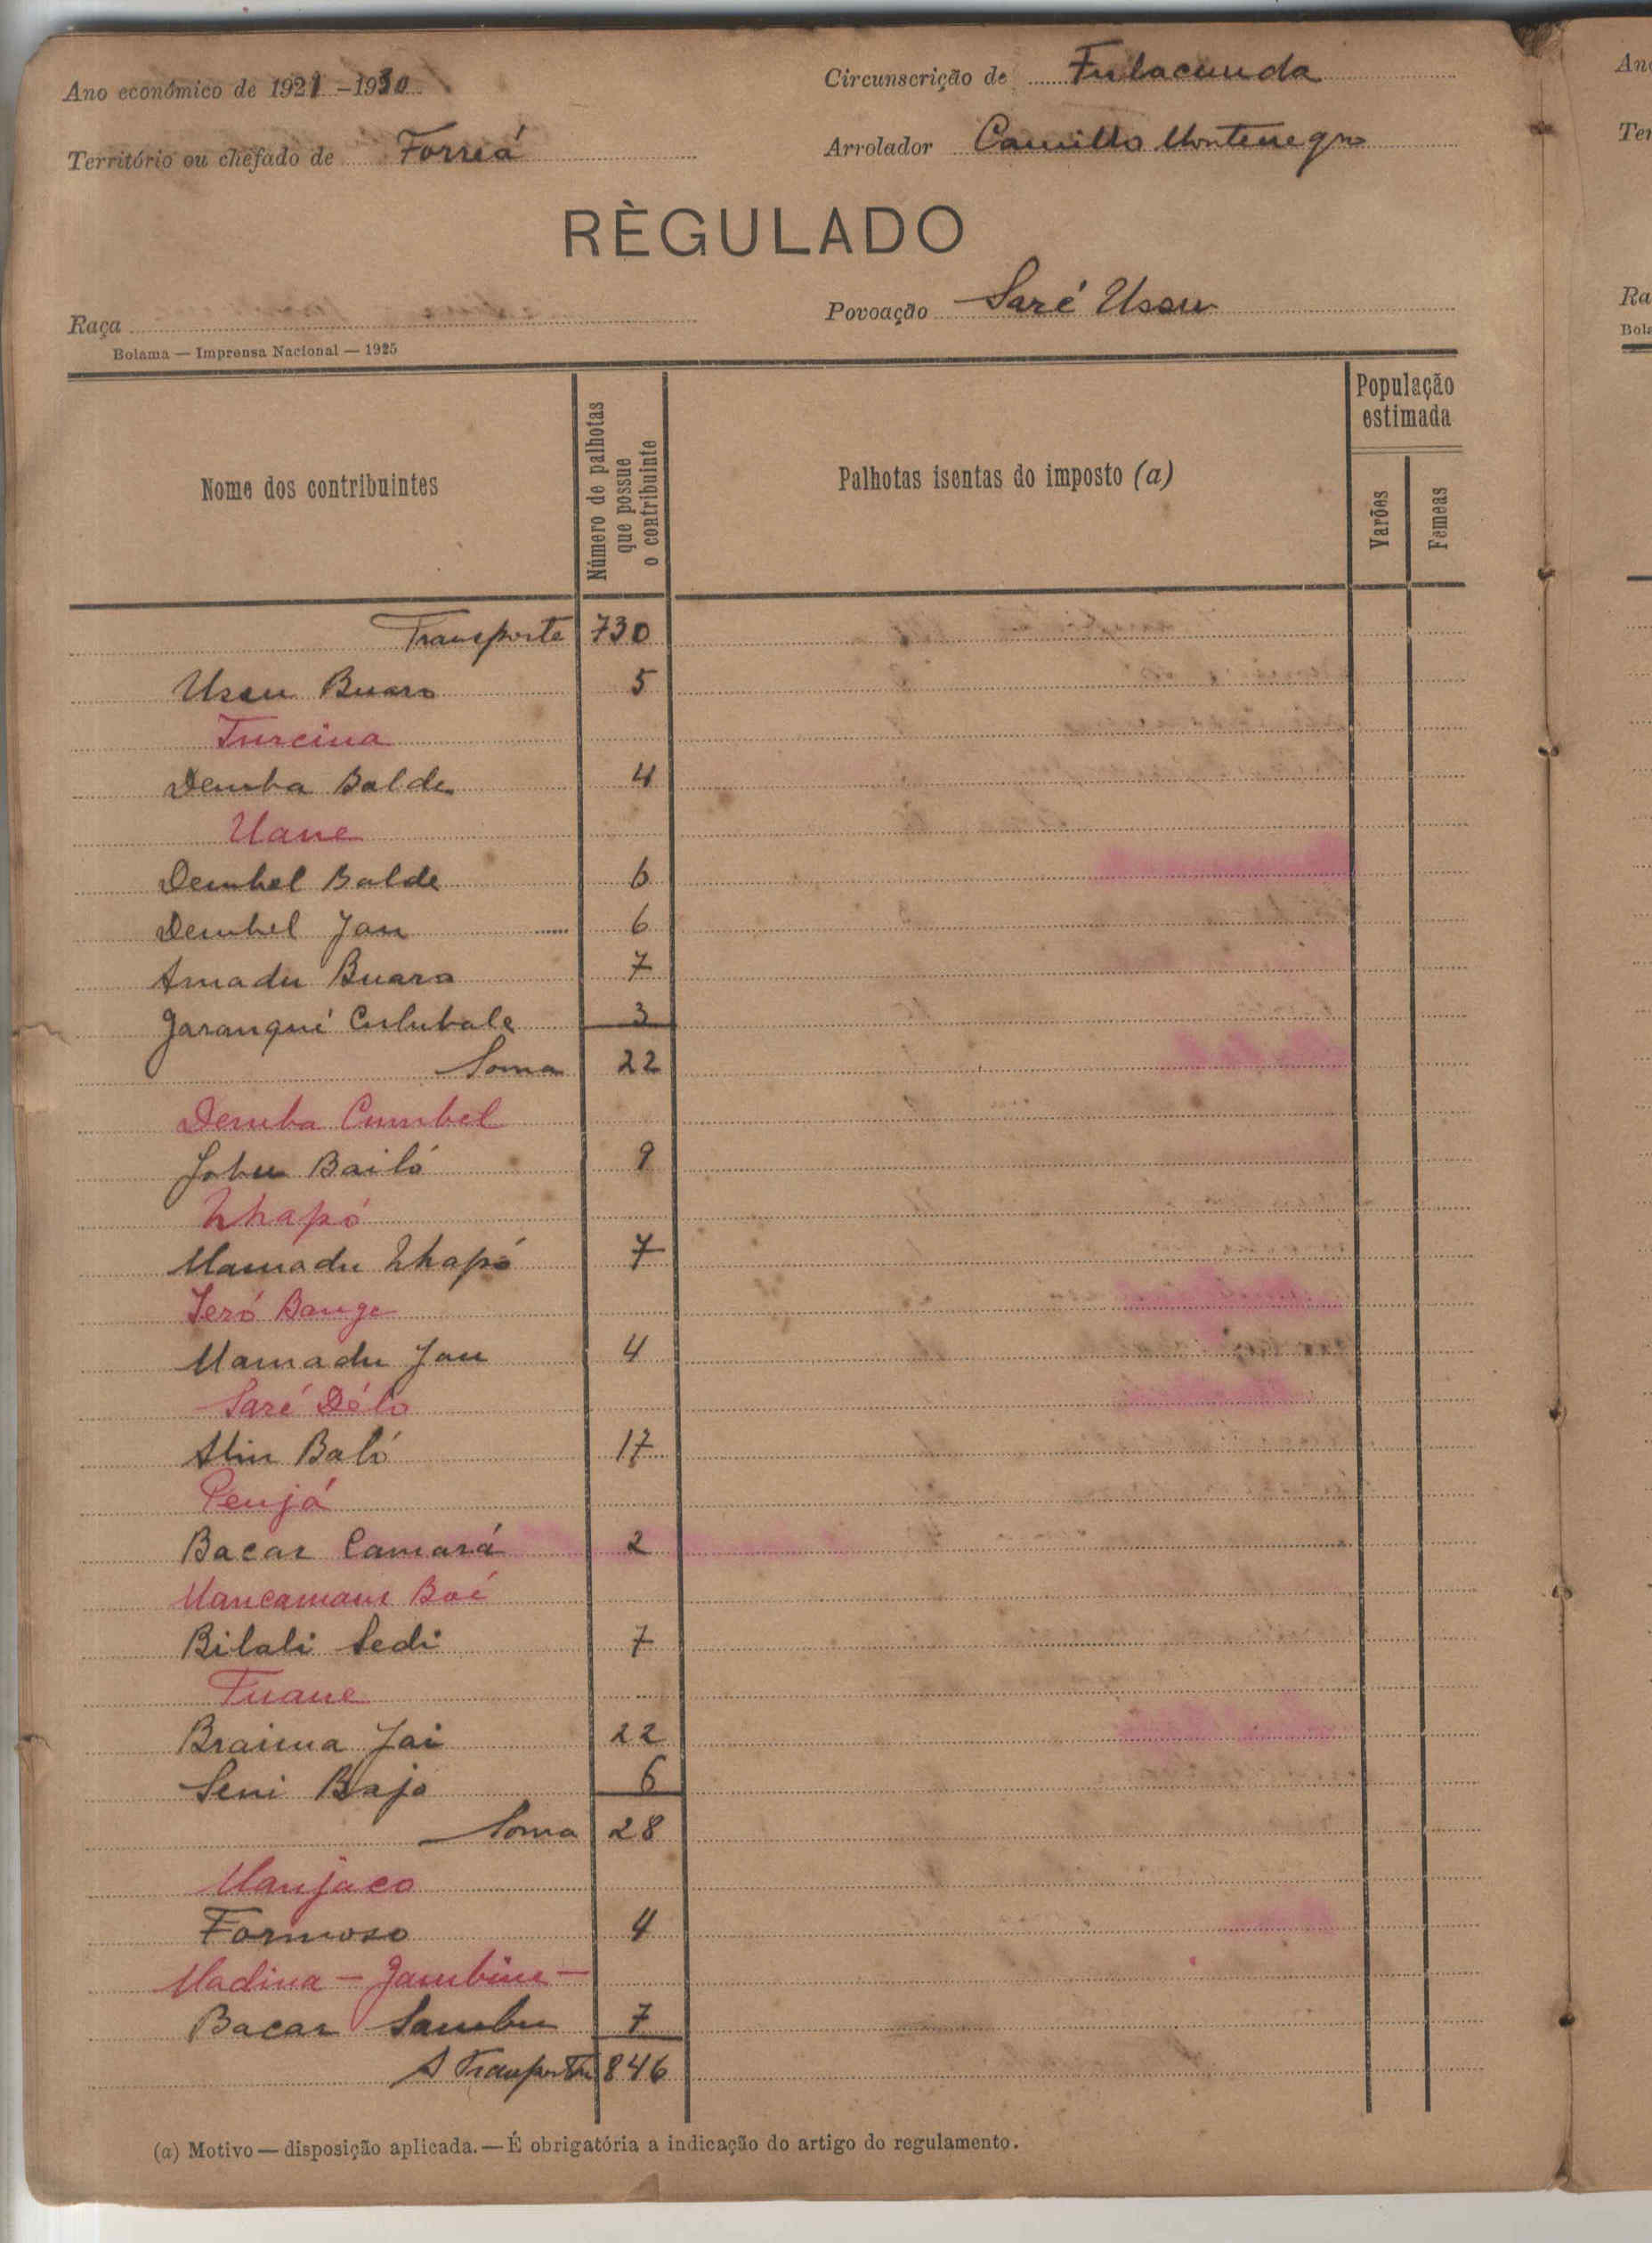 Ano económico de 1929 –1930
Circunscrição de Fulacunda
Território ou chefado de Forreá
Arrolador Camillo Montenegro
RÈGULADO
Raça
Povoação Saré Ussu
Bolama — Imprensa Nacional — 1925
Nome dos contribuintes
Número de palhotas que possue o contribuinte
Palhotas isentas do imposto (a)
População estimada
Varões
Femeas
Transporte 730
Ussu Buaro 5
Turcina
Demba Balde 4
Uane
Dembel Balde 6
Dembel Jau 6
Amadu Buaro 7
Garanqui Culubale 3
Soma 22
Demba Cumbel
Jobu Bailó 9
Nhapó
Mamadu Nhapó 7
Seró Bange
Mamadu Jau 4
Saré Déló
Aliu Baló 17
Penjá
Bacar Camará 2
Mancamam Boé
Bilali Sedi 7
Tuane
Braima Jai 22
Seni Bajo 6
Soma 28
Manjaco
Formoso 4
Madina – Jambium –
Bacar Sambu 7
A Transporte 846
(a) Motivo — disposição aplicada. — É obrigatória a indicação do artigo do regulamento.